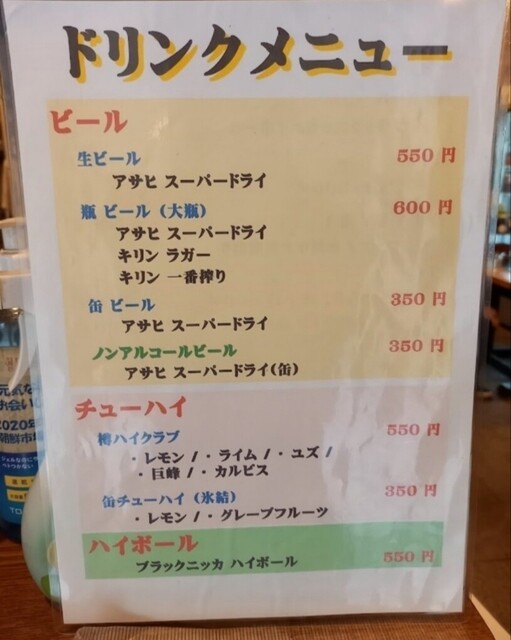 ドリンクメニュー
ビール
生ビール 550 円
アサヒ スーパードライ
瓶 ビール（大瓶） 600 円
アサヒ スーパードライ
キリン ラガー
キリン 一番搾り
缶 ビール 350 円
アサヒ スーパードライ
ノンアルコールビール 350 円
アサヒ スーパードライ(缶)
チューハイ
樽ハイクラブ 550 円
・レモン /・ライム /・ユズ /
・巨峰 /・カルピス
缶チューハイ（氷結） 350 円
・レモン /・グレープフルーツ
ハイボール
ブラックニッカ ハイボール 550 円
元気な
お会い
2020年
朝鮮市場